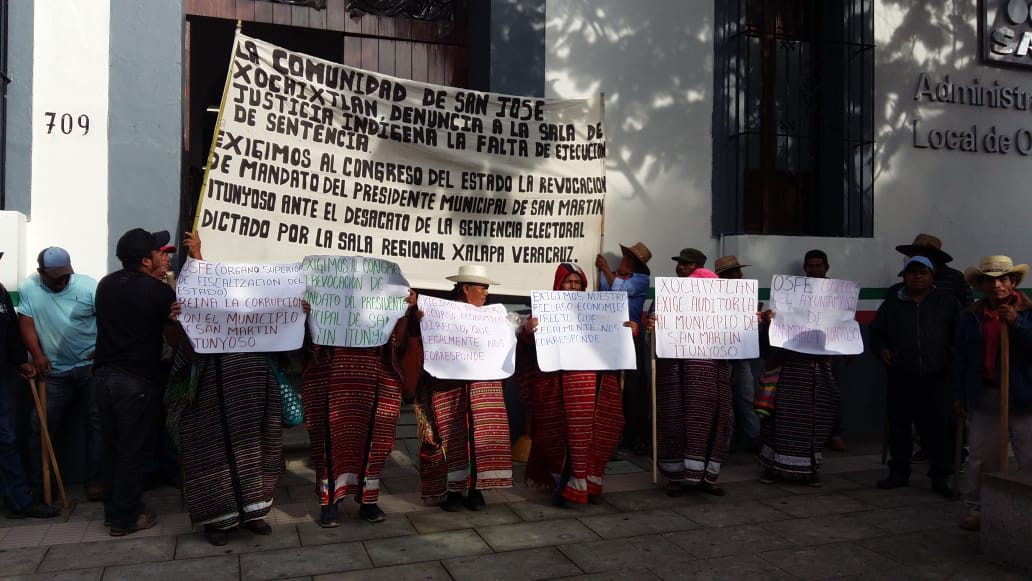 LA COMUNIDAD DE SAN JOSE
XOCHIXTLAN, DENUNCIA A LA SALA DE
JUSTICIA INDIGENA LA FALTA DE EJECUCION
DE SENTENCIA.
EXIGIMOS AL CONGRESO DEL ESTADO LA REVOCACION
DE MANDATO DEL PRESIDENTE MUNICIPAL DE SAN MARTIN
ITUNYOSO ANTE EL DESACATO DE LA SENTENCIA ELECTORAL
DICTADO POR LA SALA REGIONAL XALAPA VERACRUZ.
709
SA
Administra
Local de
OSFE (ORGANO SUPERIOR
DE FISCALIZACION DEL
ESTADO)
REINA LA CORRUPCION
SAN MARTIN
ITUNYOSO
EXIGIMOS AL CONGRE
REVOCACION DE
MANDATO DEL PRESIDENTE
MUNICIPAL DE SAN
ECONOMICO
DIRECTO, QUE
LEGALMENTE NOS
CORRESPONDE
EXIGIMOS NUESTRO
RECURSO ECONOMICO
DIRECTO QUE
LEGALMENTE NOS
CORRESPONDE
XOCHIXTLAN
EXIGE AUDITORIA
AL MUNICIPIO DE
SAN MARTIN
ITUNYOSO
OSFE
AYUNTAMIENTO
DE
SAN MARTIN
ITUNYOSO